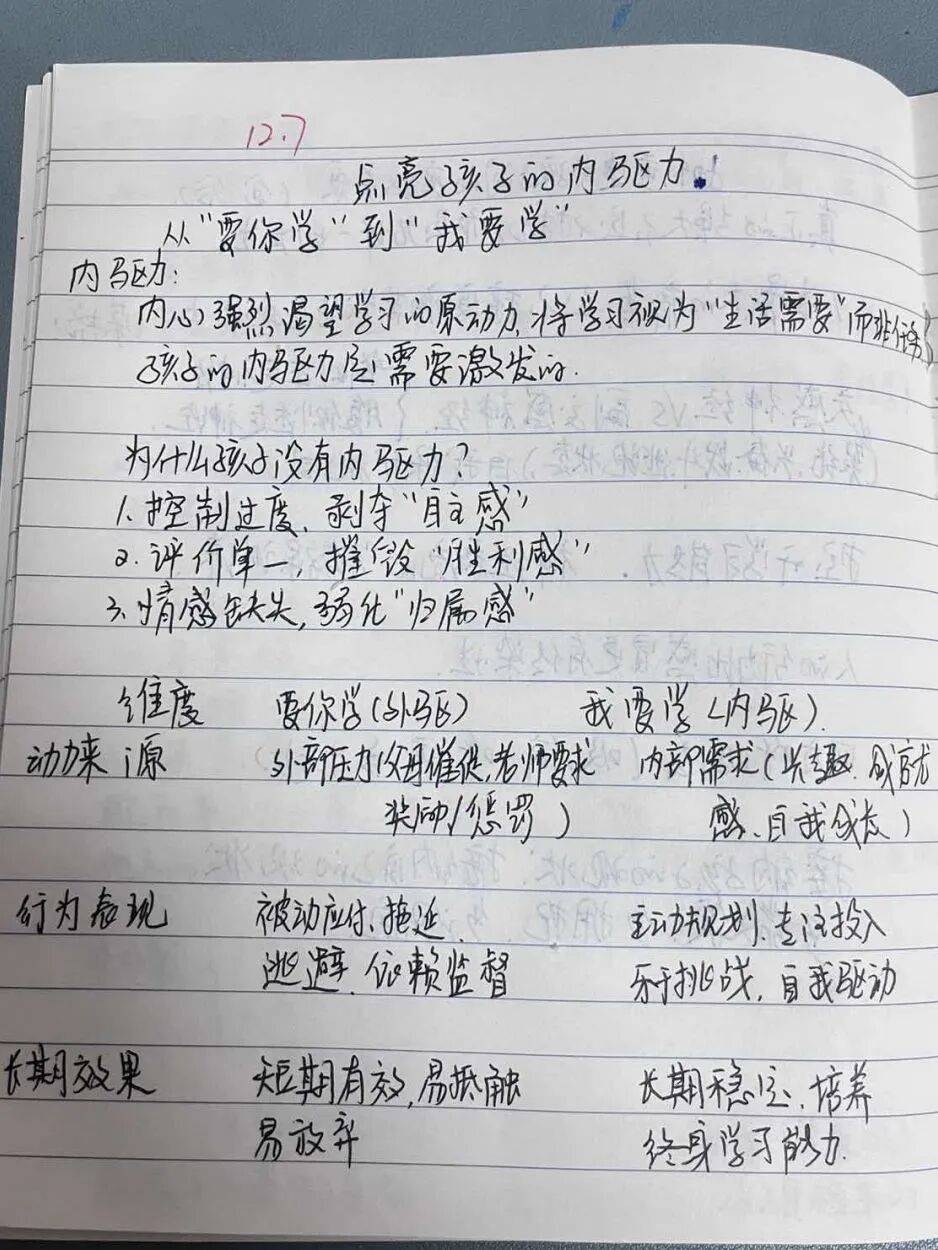 12.7
点亮孩子的内驱力.
从"要你学"到"我要学"
内驱力:
内心强烈渴望学习的原动力,将学习视为"生活需要"而非任务
孩子的内驱力是需要激发的.
为什么孩子没有内驱力?
1.控制过度、剥夺"自主感"
2.评价单一,摧毁"胜利感"
3.情感缺失,弱化"归属感"
维度 要你学(外驱) 我要学(内驱).
动力来源 外部压力(父母催促,老师要求 内部需求(兴趣、成就
奖励/惩罚) 感、自我成长)
行为表现 被动应付、拖延、 主动规划、专注投入
逃避、依赖监督 乐于挑战,自我驱动
长期效果 短期有效,易抵触 长期稳定、培养
易放弃 终身学习能力.